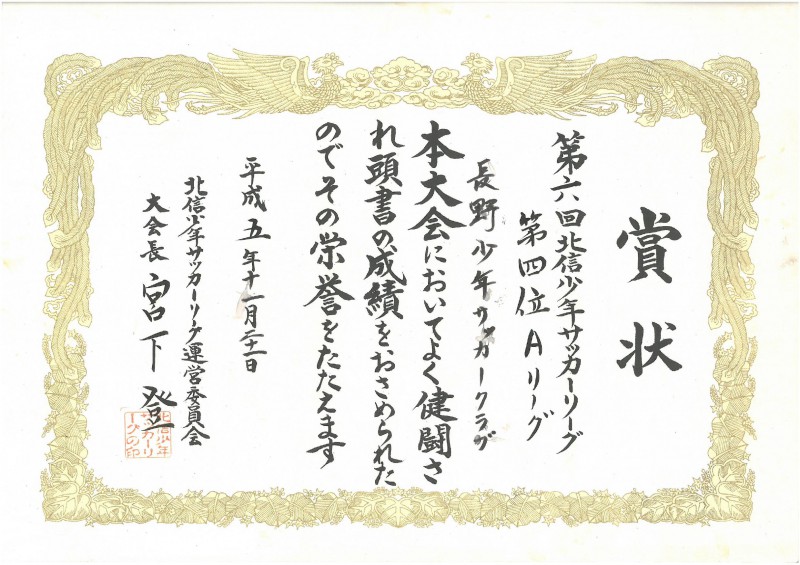 賞状
第六回北信少年サッカーリーグ
第四位Aリーグ
長野少年サッカークラブ
本大会においてよく健闘さ
れ頭書の成績をおさめられた
のでその栄誉をたたえます
平成五年十一月二十一日
北信少年サッカーリーグ運営委員会
大会長 宮下登
北信少年
サッカーリ
ーグの印